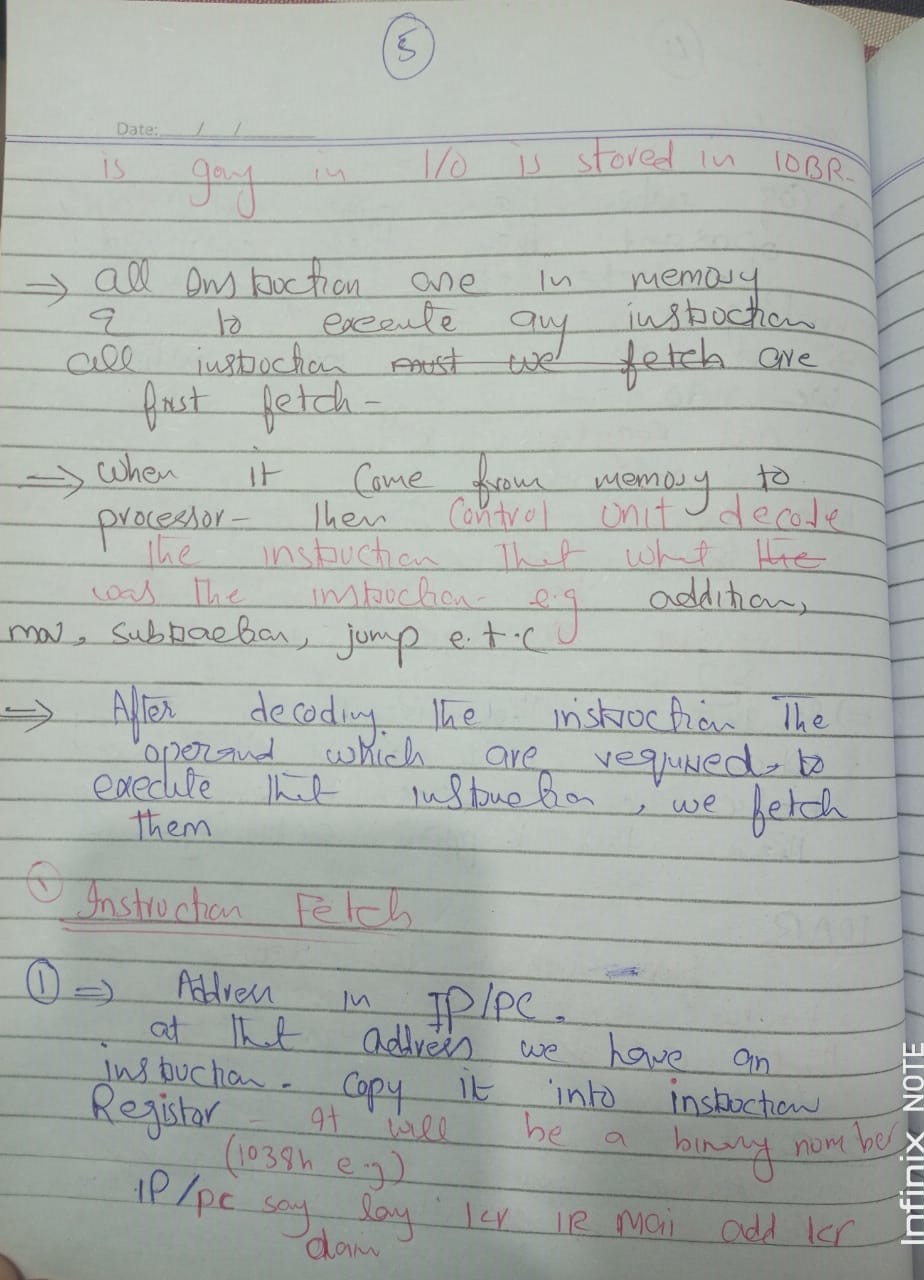 5
Date: / /
is gay in I/O is stored in IOBR-
→ all Instruction are in memory
& to execute any instruction
all instruction must we fetch are
first fetch-
→ when it come from memory to
processor- Then Control Unit decode
The instruction That what the
was The instruction- e.g addition,
mov, subtraction, jump e.t.c
⇒ After decoding The instruction The
operand which are required, to
execute that instruction, we fetch
them
① Instruction Fetch
① ⇒ Address in IP/PC.
at that address we have an
instruction. Copy it into instruction
Registor - It will be a binary number
(1038h e.g)
IP/PC say lay kr IR mai add kr
dain
Infinix NOTE